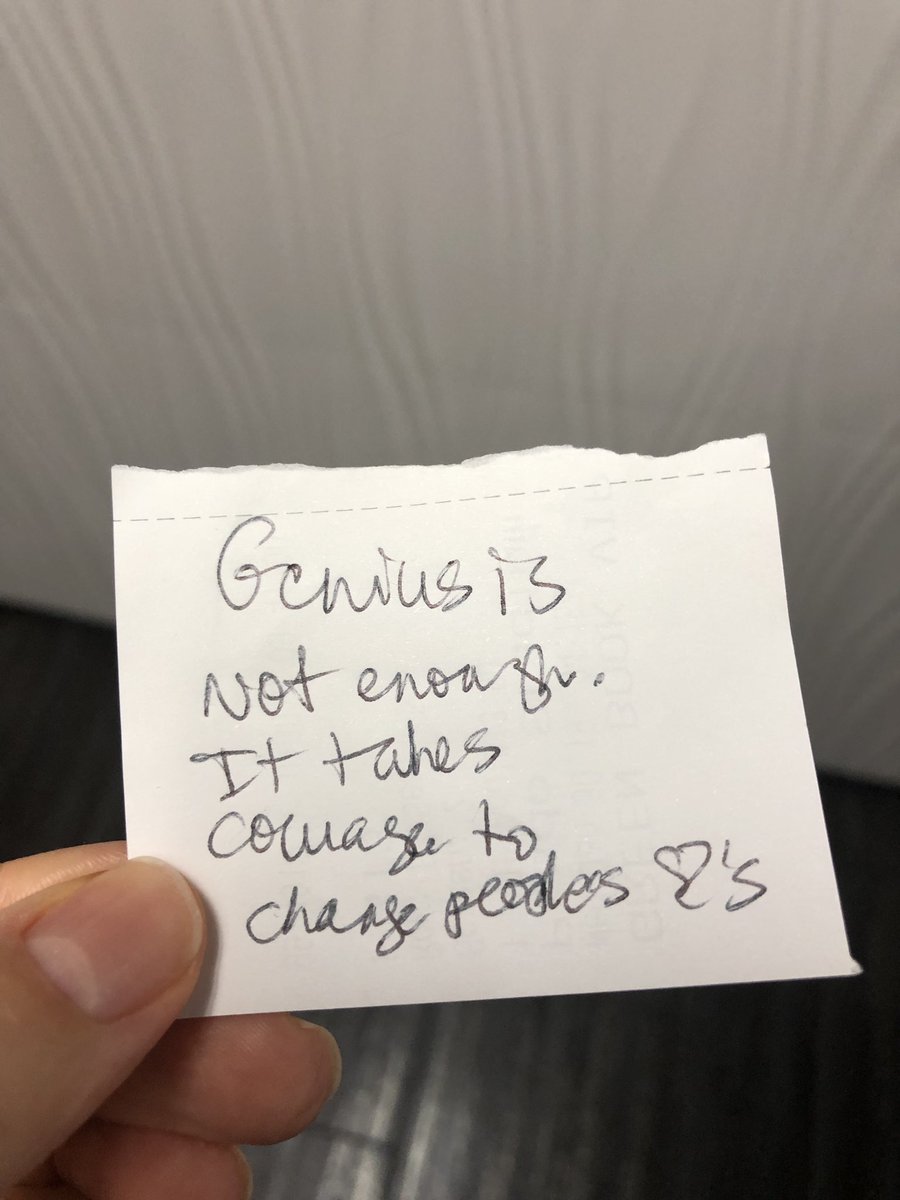 Genius is
Not enough.
It takes
courage to
change peoples ♡'s